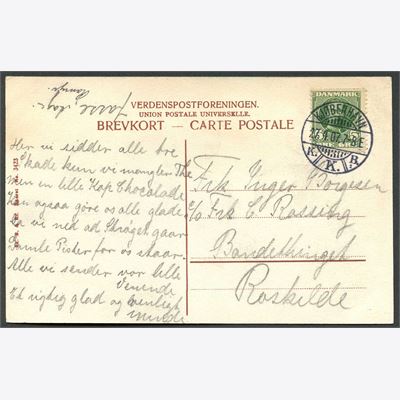 VERDENSPOSTFORENINGEN.
UNION POSTALE UNIVERSELLE.
BREVKORT — CARTE POSTALE
DANMARK
KJØBENHAVN
K.
K. B.
3423
Her vi sidder alle tre
Kade kun vi mangler The
Men en lille Kop Chocolade
Kan ogsaa göre os alle glade
Da vi ned ad Strøget gaar
Gamle Piger for os staar.
Alle vi sender vor lille
Veninde
Et rigtig glad og venligt
minde
Frk Inger Borgesen
c/o Frk C Rossing
Bondetinget
Roskilde